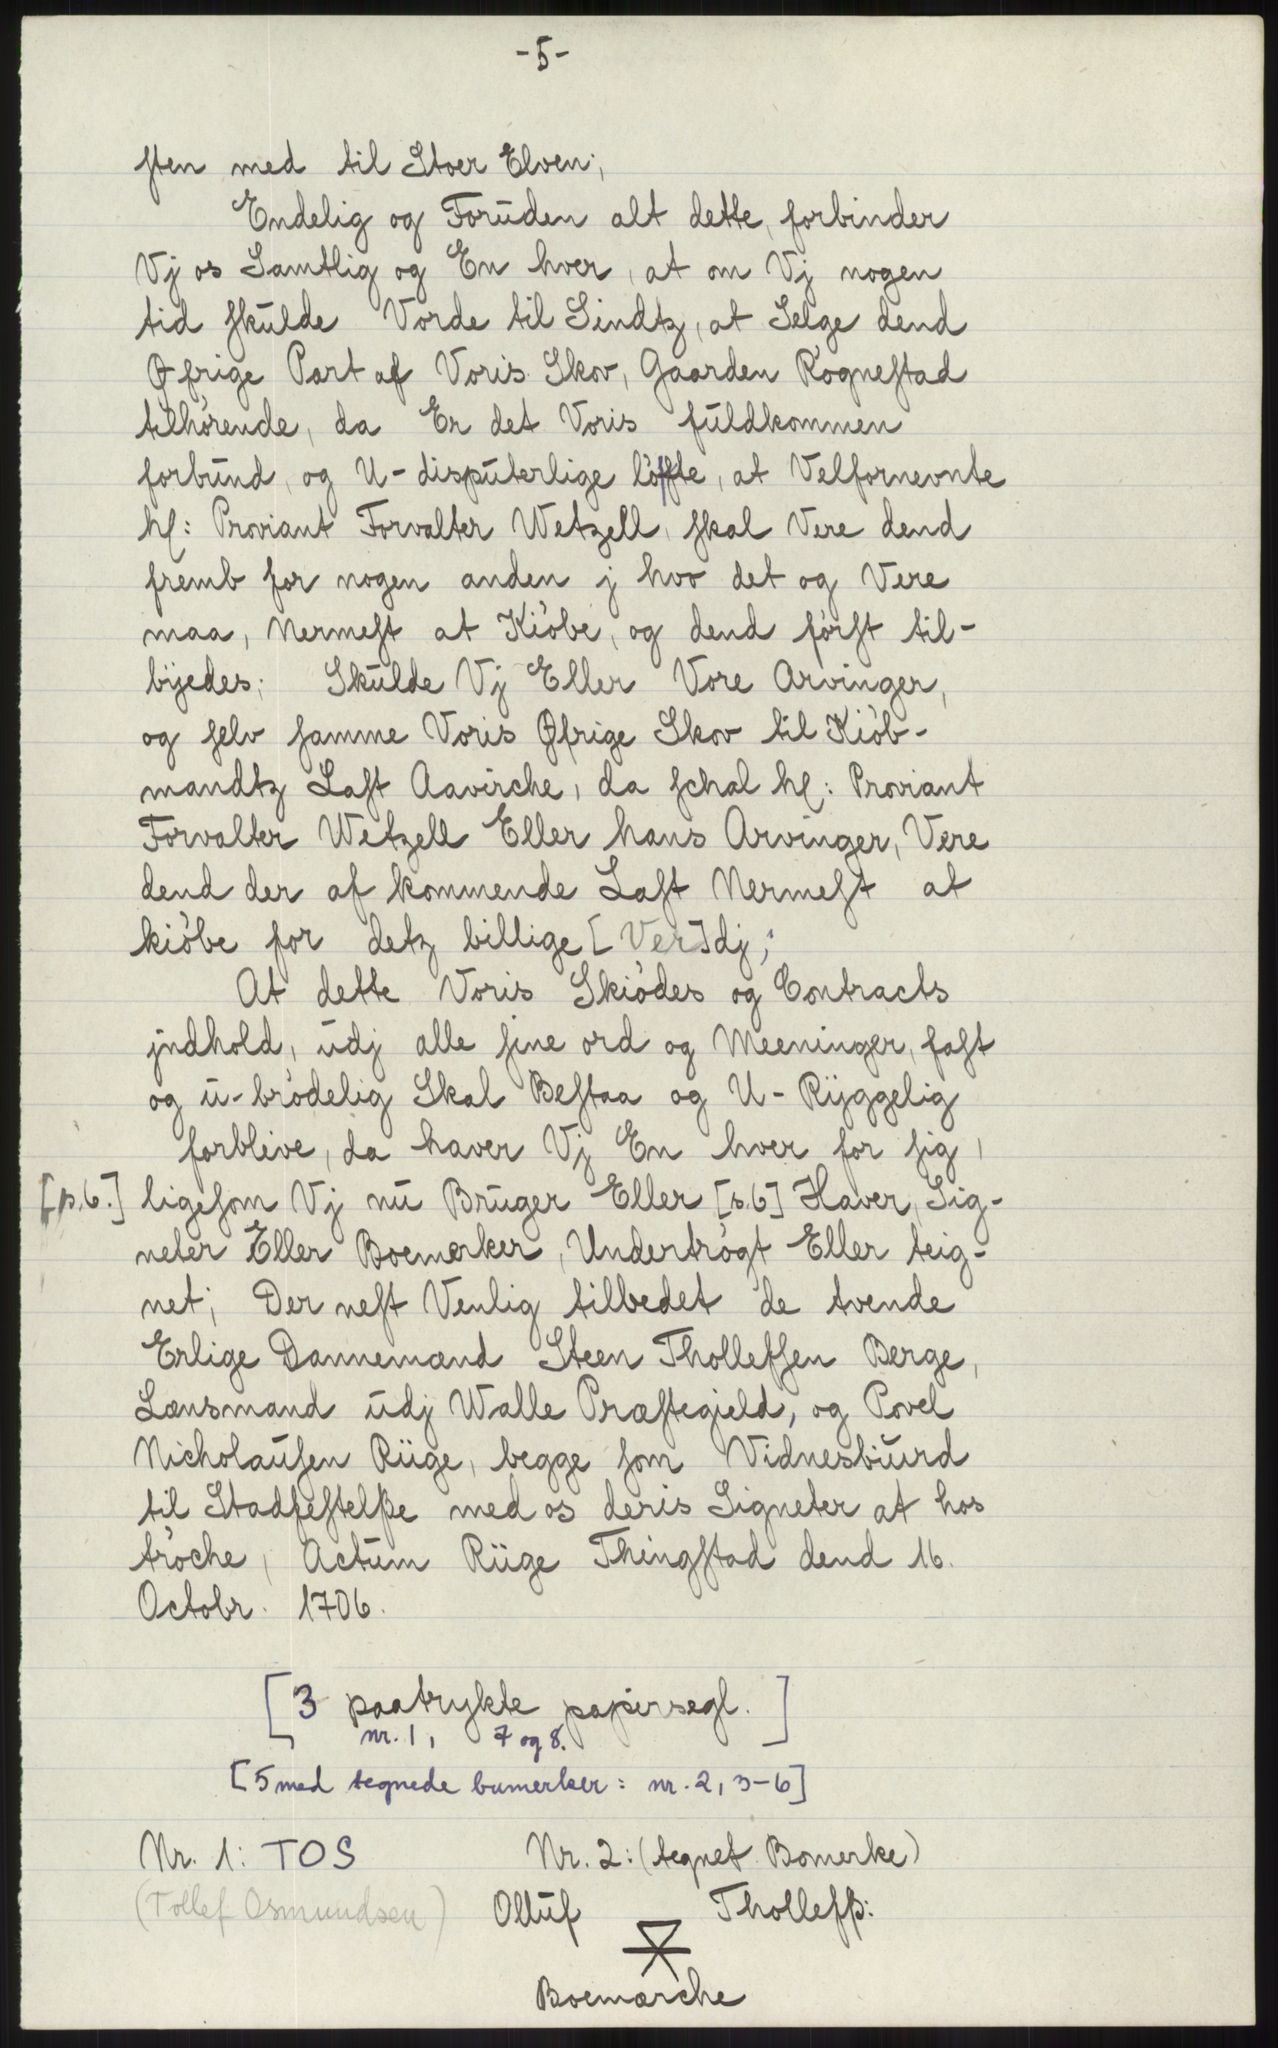 -5-
sten med til Stoer Elven;
Endelig og Foruden alt dette, forbinder
Vj os Samtlig og En hver, at om Vj nogen
tid skulde Vorde til Sindtz, at Selge dend
Øfrige Part af Voris Skov, Gaarden Rognestad
tilhörende, da Er det Voris fuldkommen
forbund, og U-disputerlige löffte, at Velfornevnte
hl: Proviant Forvalter Wetzell, skal Vere dend
fremb for nogen anden j hvo det og Vere
maa, Nermest at Kiöbe, og dend först til-
bÿedes; Skulde Vj Eller Vore Arvinger,
og selv samme Voris Øfrige Skov til Kiöb-
mandtz Last Aavirche, da schal hl: Proviant
Forvalter Wetzell Eller hans Arvinger, Vere
dend der af kommende Last Nermest at
kiöbe for detz billige [Ver]dj;
At dette Voris Skiödes og Contracts
jndhold, udj alle sine ord og Meeninger, fast
og u-brödelig Skal Bestaa og U-Rÿggelig
forblive, da haver Vj En hver for sig,
[p.6.] ligesom Vj nu Bruger Eller [s.6] Haver, Sig-
neter Eller Boemerker, Undertrögt Eller teig-
net; Der nest Venlig tilbedet de tvende
Erlige Dannemænd Steen Thollefsen Berge,
Lænsmand udj Walle Præstegield, og Povel
Nicholausen Rüge, begge som Vidnesbiurd
til Stadfestelße med os deris Signeter at hos
tröche, Actum Rüge Thingstad dend 16.
Octobr. 1706.
[3 paatrykte papirsegl.]
nr. 1, 7 og 8.
[5 med tegnede bumerker: nr. 2, 3-6]
Nr. 1: TOS Nr. 2: (tegnet Bomerke)
(Tollef Osmundsen) Olluf Thollefß:
Boemærche